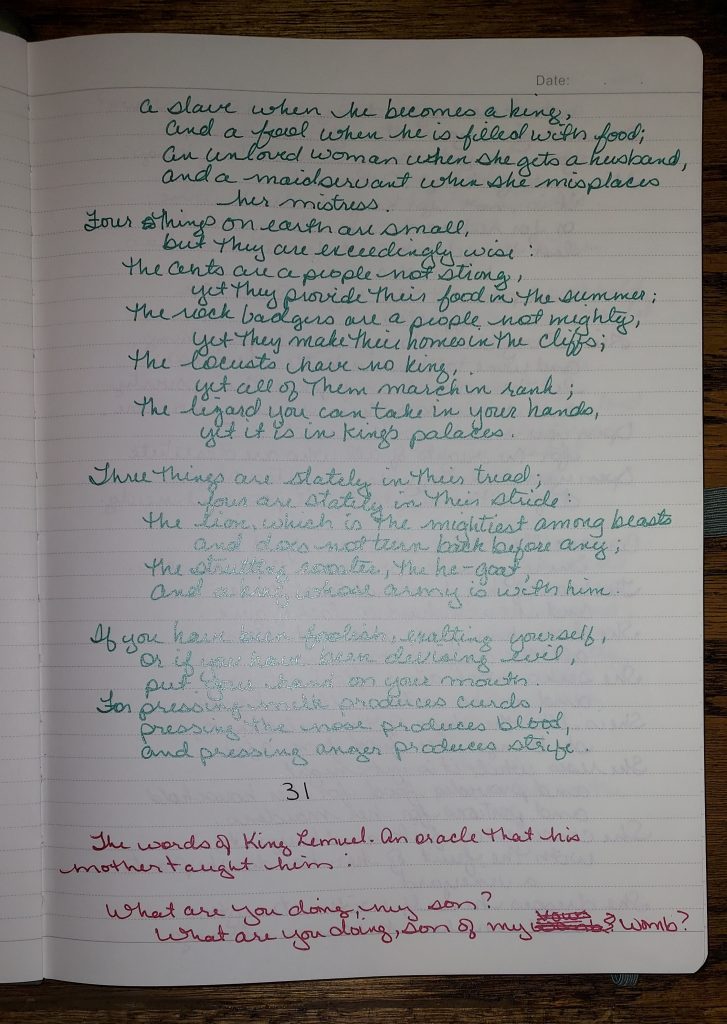 Date:
a slave when he becomes a king,
and a fool when he is filled with food;
an unloved woman when she gets a husband,
and a maidservant when she misplaces
her mistress.
Four things on earth are small,
but they are exceedingly wise:
the ants are a people not strong,
yet they provide their food in the summer;
the rock badgers are a people not mighty,
yet they make their homes in the cliffs;
the locusts have no king,
yet all of them march in rank;
the lizard you can take in your hands,
yet it is in kings palaces.
Three things are stately in their tread;
four are stately in their stride:
the lion, which is the mightiest among beasts
and does not turn back before any;
the strutting rooster, the he-goat,
and a king whose army is with him.
If you have been foolish, exalting yourself,
or if you have been devising evil,
put your hand on your mouth.
For pressing milk produces curds,
pressing the nose produces blood,
and pressing anger produces strife.
31
The words of King Lemuel. An oracle that his
mother taught him:
What are you doing, my son?
What are you doing, son of my womb?